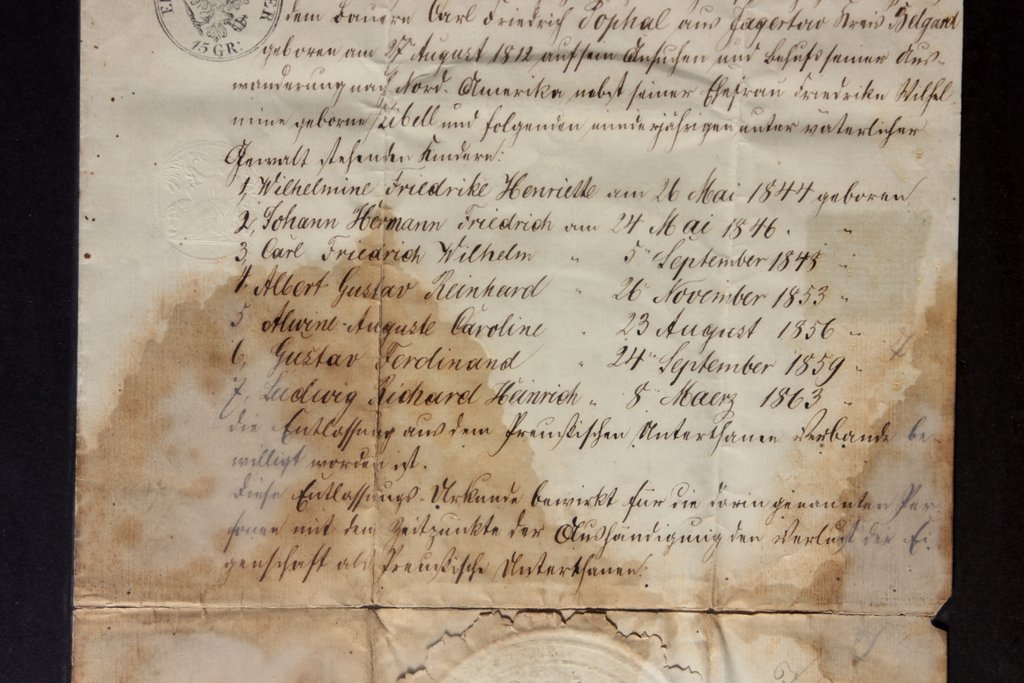 15 GR:
dem Bauern Carl Friedrich Pophal aus Jagertow Kreis Belgard
geboren am 27 August 1812 auf sein Ansuchen und Behufs seiner Aus-
wanderung nach Nord-Amerika nebst seiner Ehefrau Friedrike Wilhel
mine geborne Zibell und folgenden minderjährigen unter väterlicher
Gewalt stehenden Kindern:
1, Wilhelmine Friedrike Henriette am 26 Mai 1844 geboren
2, Johann Hermann Friedrich am 24 Mai 1846. "
3, Carl Friedrich Wilhelm " 5 September 1848 "
4. Albert Gustav Reinhard " 26 November 1853 "
5 Alwine Auguste Caroline " 23 August 1856 "
6, Gustav Ferdinand " 24 September 1859 "
7, Ludwig Richard Heinrich " 8 Maerz 1863 "
die Entlassung aus dem Preußischen Unterthanen Verbande be-
willigt worden ist.
Diese Entlassungs-Urkunde bewirkt für die darin genannten Per
sonen mit dem Zeitpunkte der Aushändigung den Verlust der Ei-
genschaft als Preußische Unterthanen.